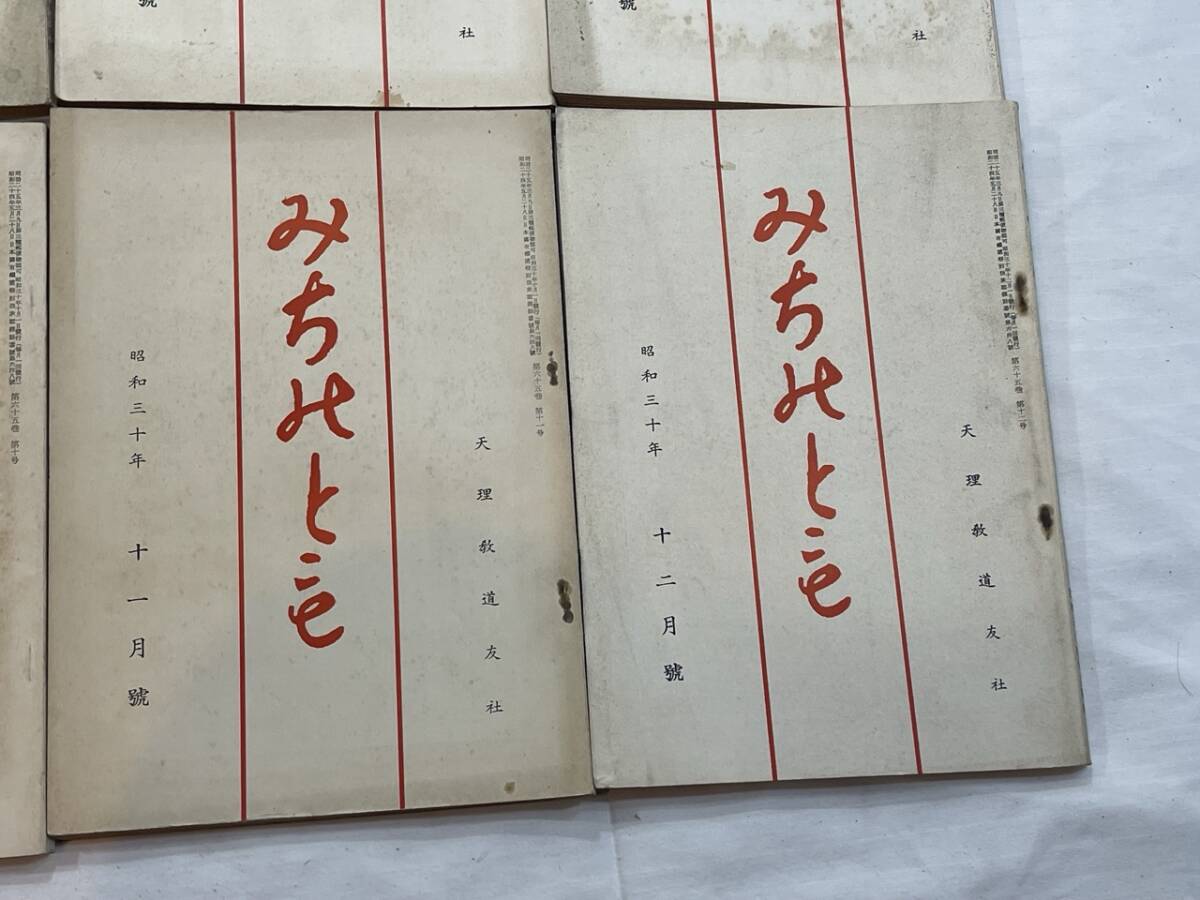 號
社
號
社
第六十五巻 第十号
第六十五巻 第十一号
天理教道友社
みちのとも
昭和三十年 十一月號
第六十五巻 第十二号
天理教道友社
みちのとも
昭和三十年 十二月號